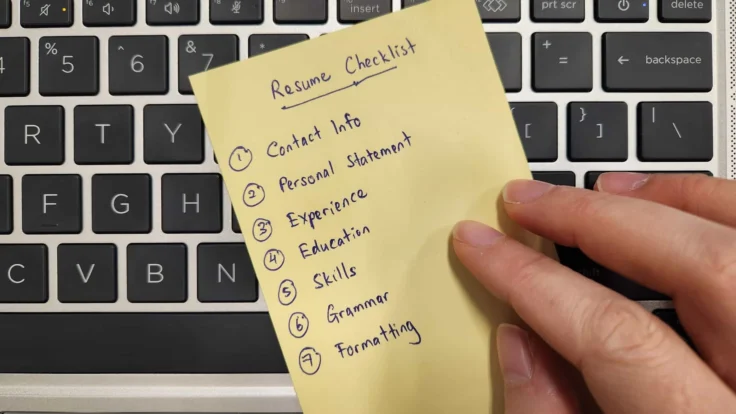 insert
prt scr
delete
4
% 5
^ 6
& 7
+ =
← backspace
R T Y
{ [
} ]
| \
F G H
C V B N
Resume Checklist
1 Contact Info
2 Personal Statement
3 Experience
4 Education
5 Skills
6 Grammar
7 Formatting